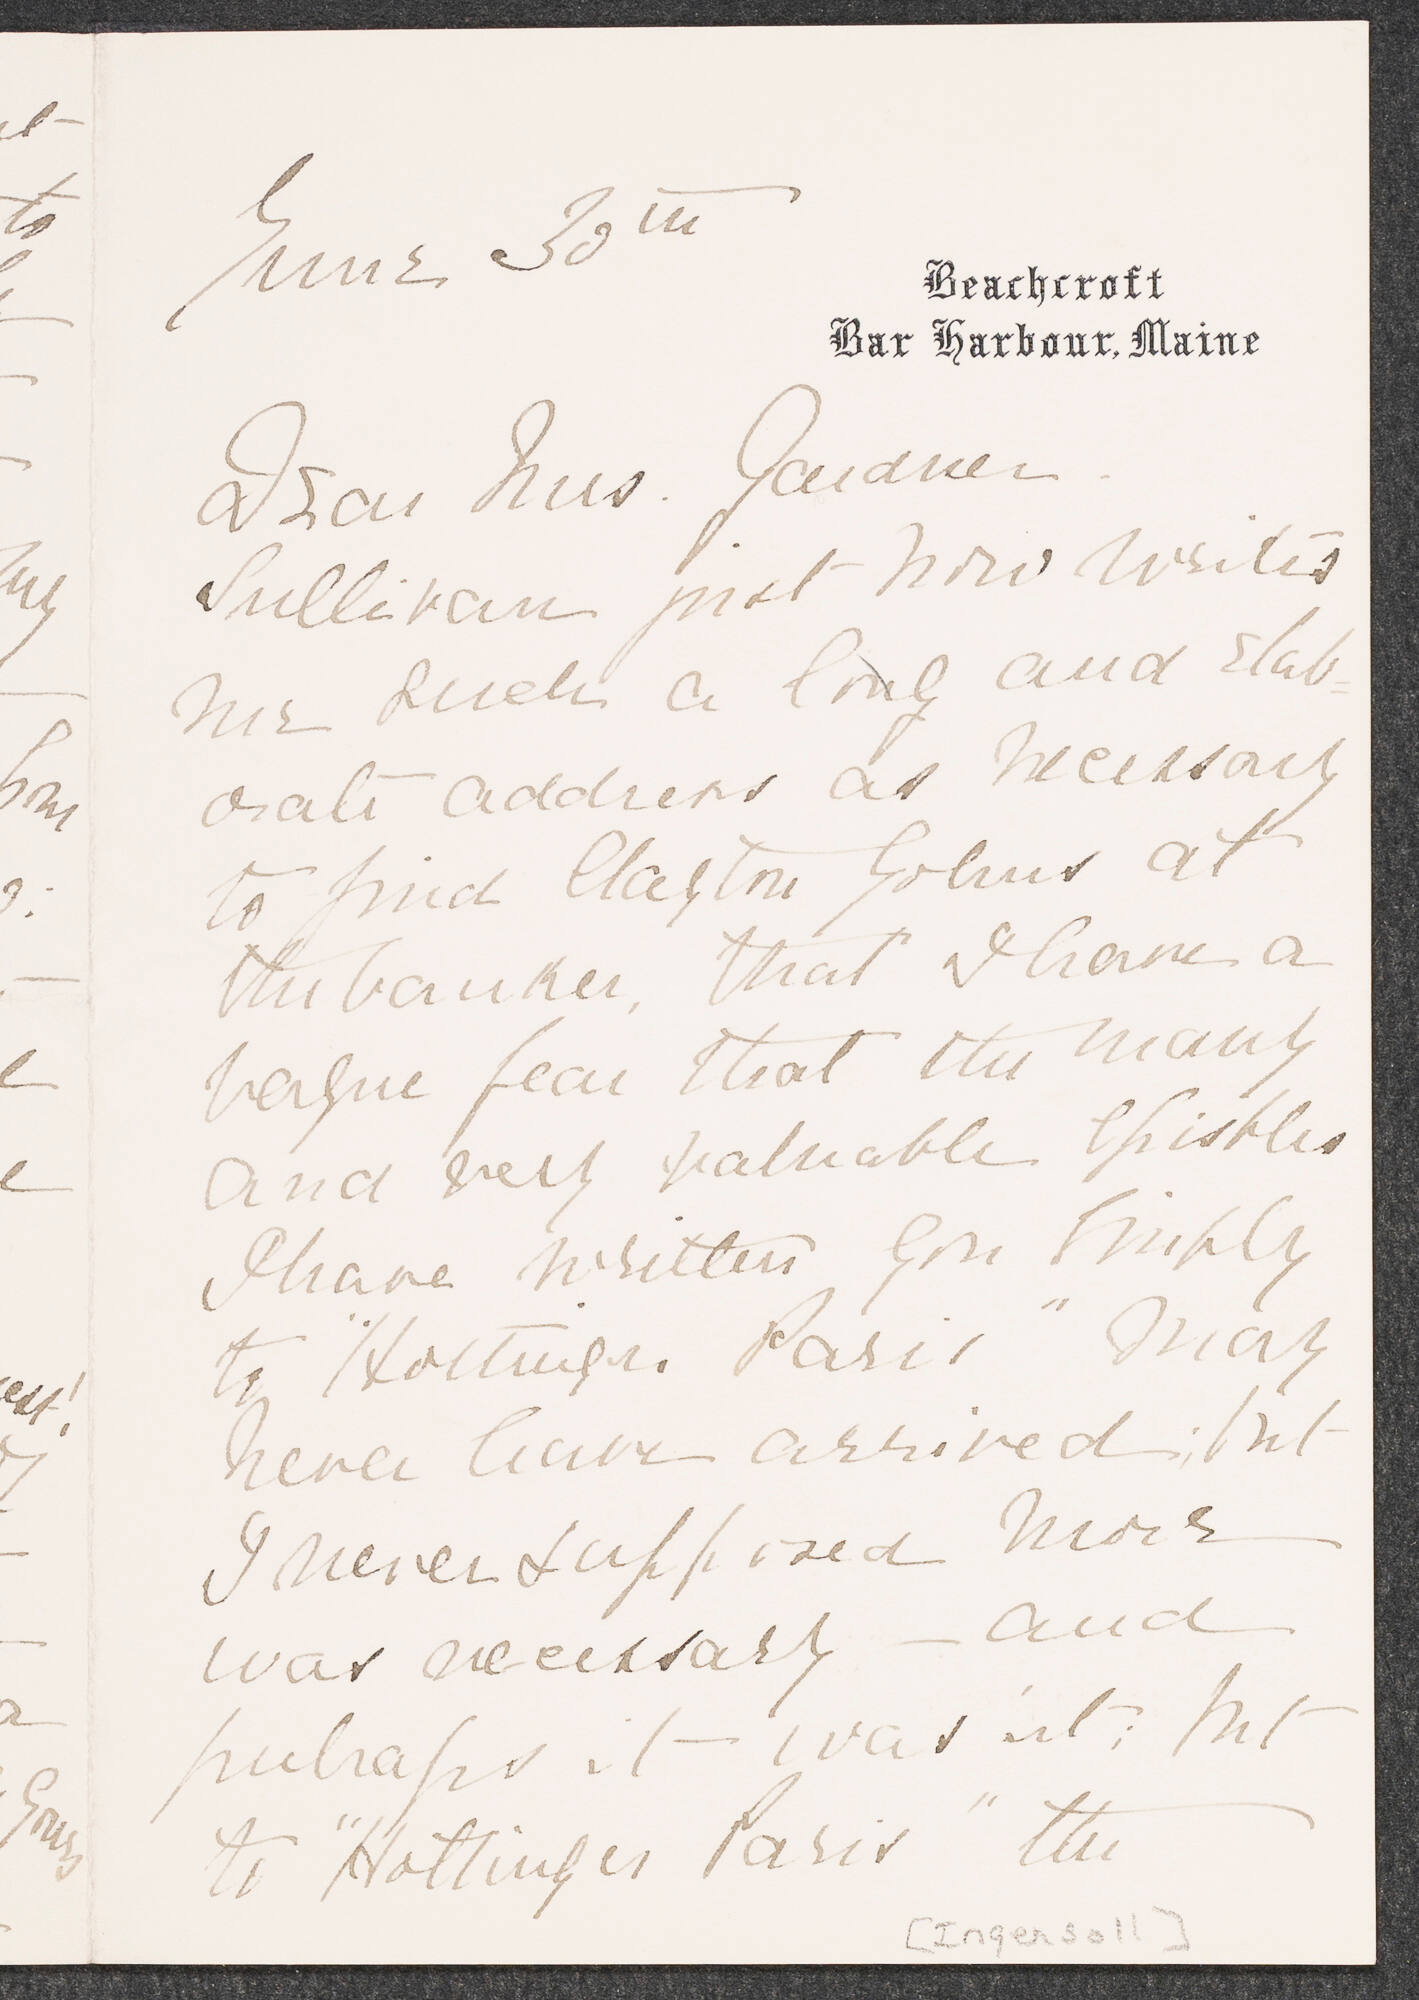 June 30th
Beachcroft
Bar Harbour, Maine
Dear Mrs. Gardner.
Sullivan just now writes
me such a long and elab=
orate address as necessary
to find Clayton Johns at
the banker, that I have a
vague fear that the many
and very valuable epistles
I have written you simply
to "Hottinger Paris" may
never have arrived; but
I never supposed more
was necessary — and
perhaps it was n't; but
to "Hottinger Paris" the
[Ingersoll]
to
est!